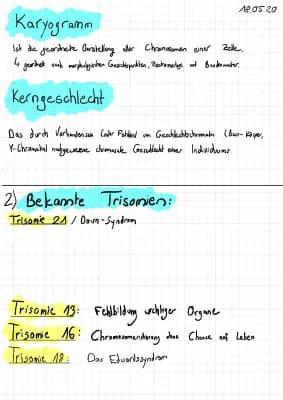 18.05.20
Karyogramm
Ist die geordnete Darstellung aller Chromosomen einer Zelle.
↳ geordnet nach morphologischen Gesichtspunkten, Zentromerlage und Bandenmuster.
Kerngeschlecht
Das durch Vorhandensein (oder Fehlen) von Geschlechtschromatin (Barr-Körper,
Y-Chromatin) nachgewiesene chromosomale Geschlecht eines Individuums.
2) Bekannte Trisomien:
Trisomie 21 / Down-Syndrom
Trisomie 13: Fehlbildung wichtiger Organe
Trisomie 16: Chromosomenstörung ohne Chance auf Leben
Trisomie 18: Das Edwardssyndrom